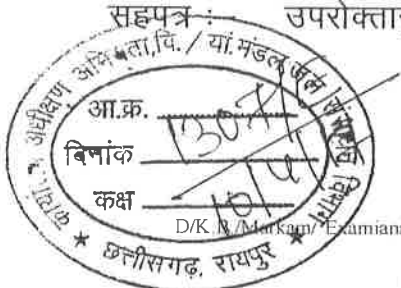 सहपत्र :- उपरोक्ता
कार्या. अधीक्षण अभियंता,वि. / यां.मंडल,जल संसाधन विभाग
आ.क्र.
दिनांक
कक्ष
D/K.R/Markam/ Examiana
★ छत्तीसगढ़, रायपुर ★